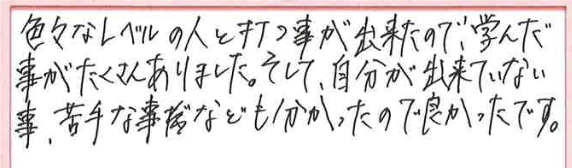 色々なレベルの人と打つ事が出来たので、学んだ
事がたくさんありました。そして、自分が出来ていない
事、苦手な事等なども分かったので良かったです。